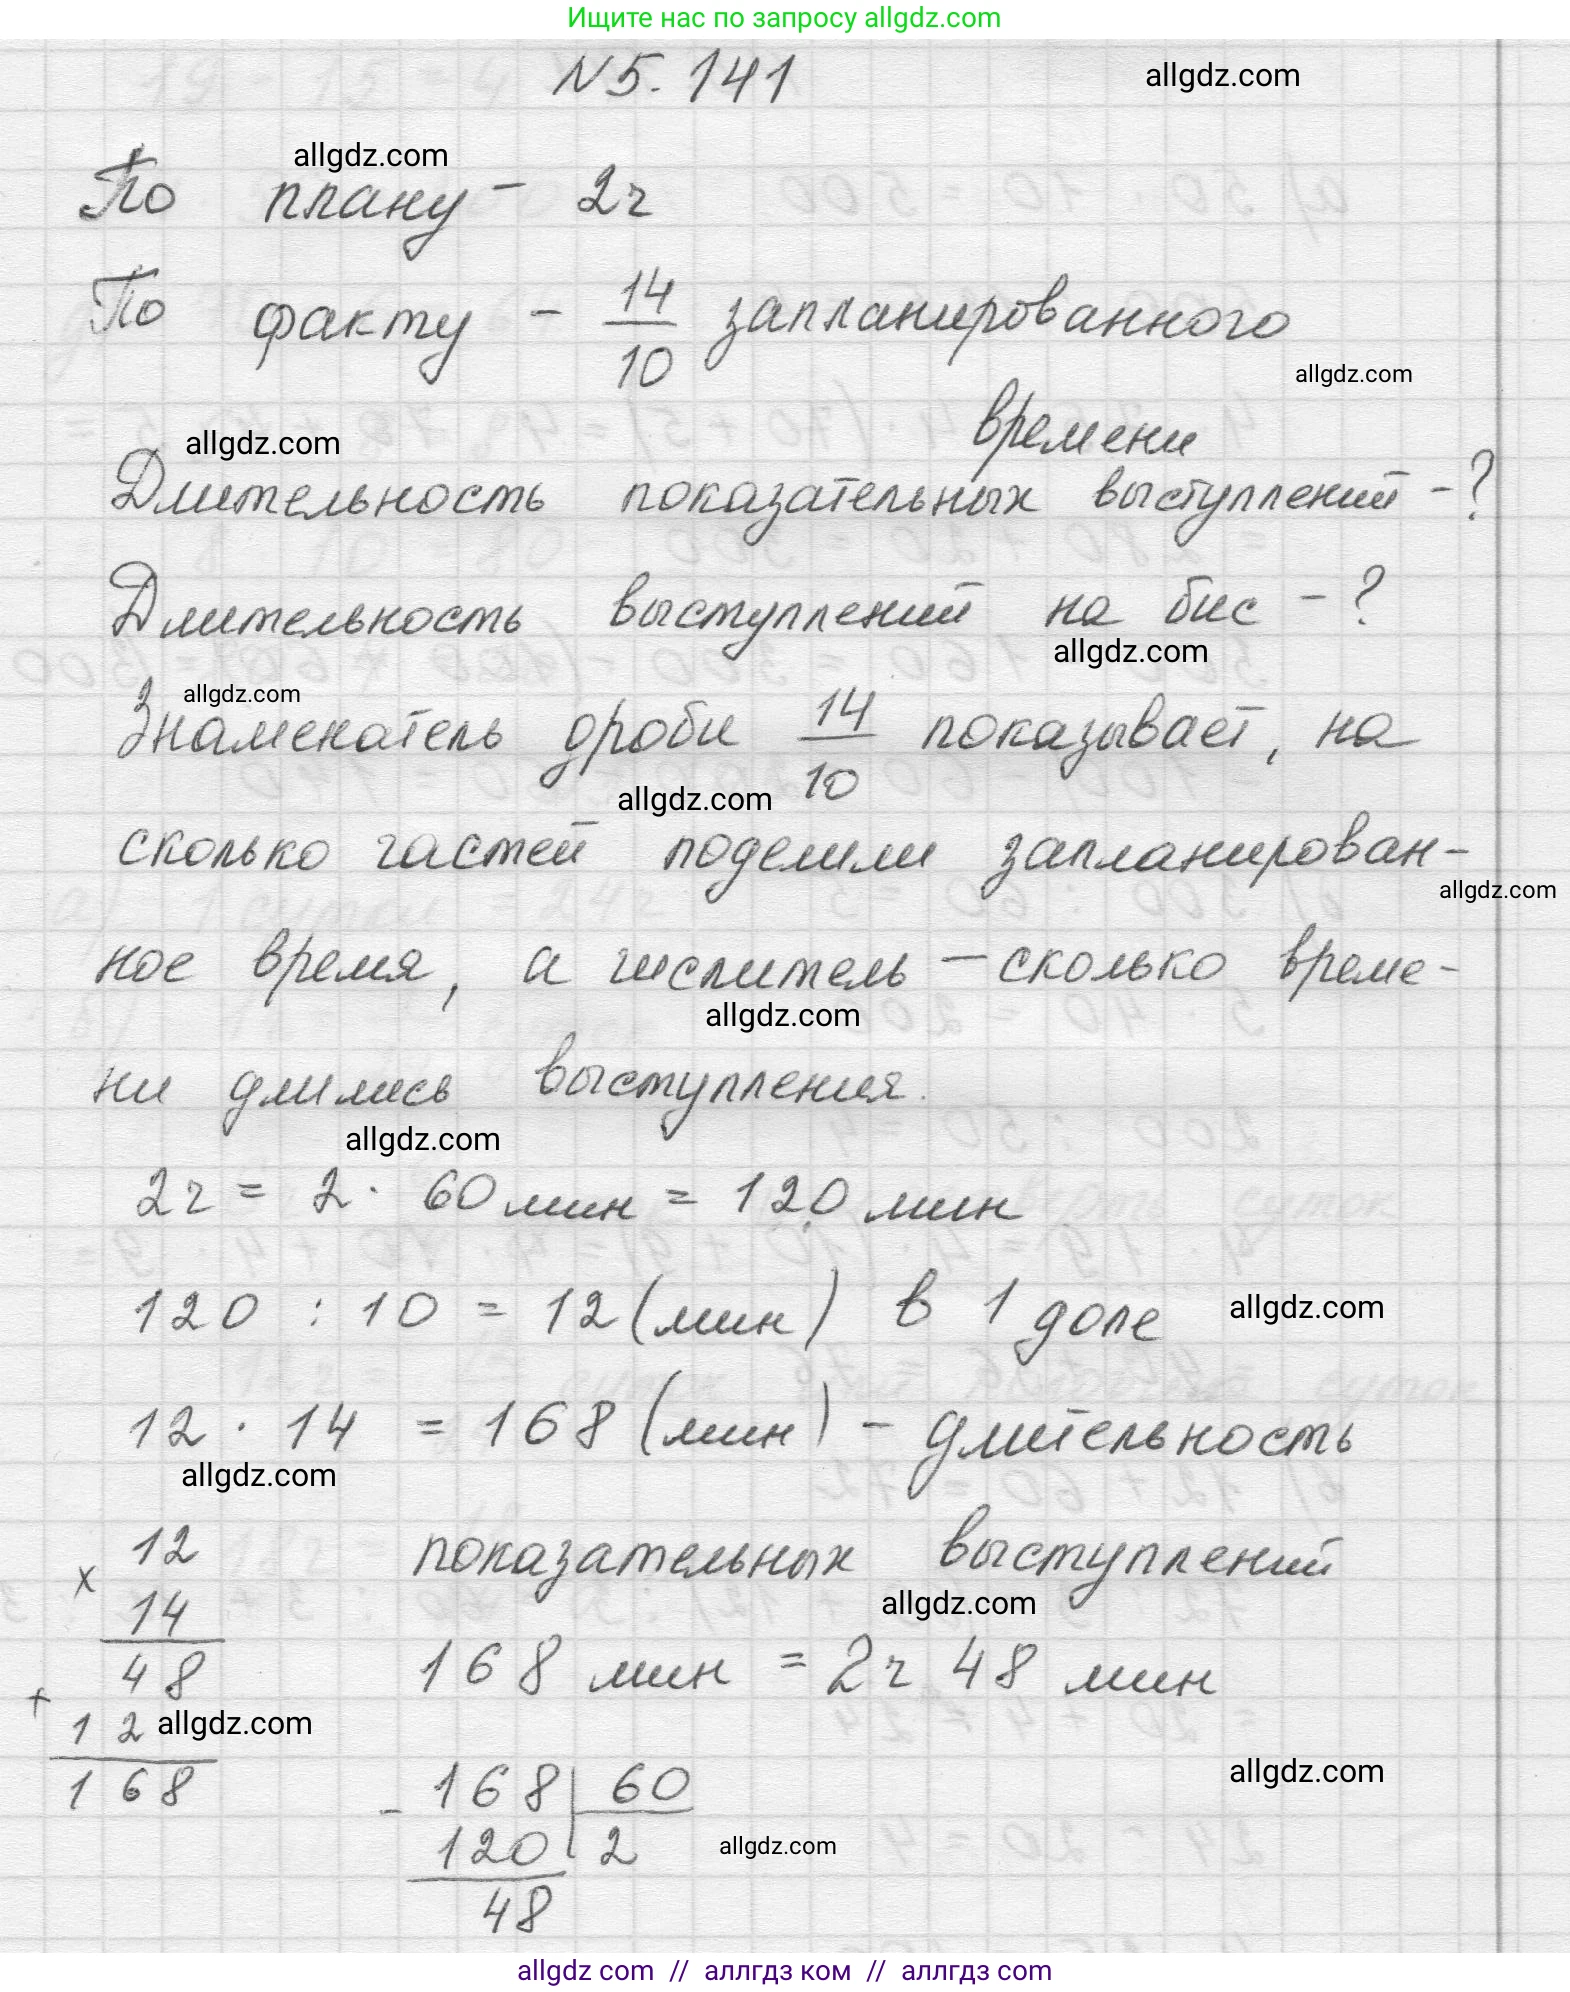 Ищите нас по запросу allgdz.com
N5.141
allgdz.com
allgdz.com
По плану - 2ч
По факту - 14/10 запланированного
allgdz.com
времени
allgdz.com
Длительность показательных выступлений - ?
Длительность выступлений на бис - ?
allgdz.com
allgdz.com
Знаменатель дроби 14/10 показывает, на
allgdz.com
сколько частей поделили запланирован-
allgdz.com
ное время, а числитель - сколько време-
allgdz.com
ни длились выступления.
allgdz.com
2ч = 2 · 60 мин = 120 мин
120 : 10 = 12 (мин) в 1 доле
allgdz.com
12 · 14 = 168 (мин) - длительность
allgdz.com
показательных выступлений
allgdz.com
168 мин = 2ч 48 мин
x 12
14
48
+ 12
allgdz.com
168
allgdz.com
- 168 | 60
120 | 2
allgdz.com
48
allgdz com // аллгдз ком // аллгдз com